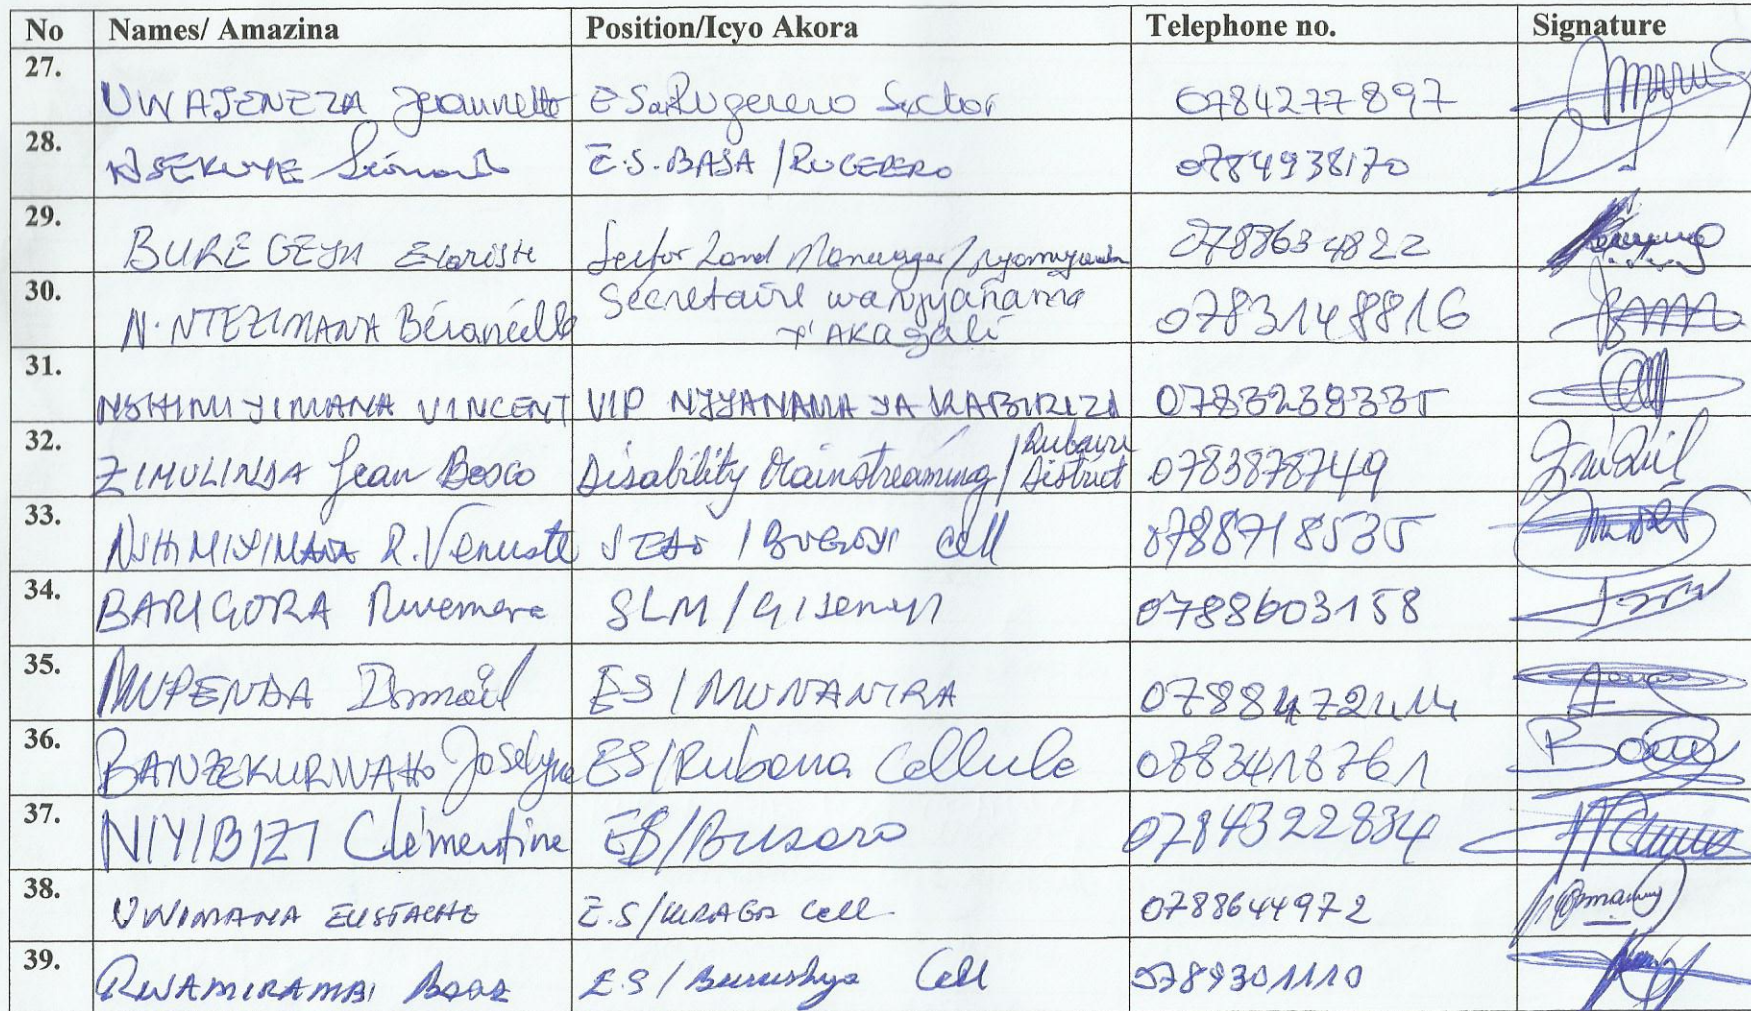 No Names/ Amazina Position/Icyo Akora Telephone no. Signature
27. UWAJENEZA Jeannette ES Rugerero Sector 0784277897
28. NSEKUYE E.S. BASA /RUGERERO 0784938170
29. BUREGEYA Evariste Sector Land Manager/ 0788634822
30. N. NTEZIMANA Bérancille Secretaire wa Njyanama
y'AKagali 0783148816
31. NSHIMIYIMANA VINCENT VIP NJYANAMA YA KABURIZI 0783239335
32. ZIMULINDA Jean Bosco Disability Mainstreaming / Rubavu District 0783878749
33. NSHIMIYIMANA R. Venuste / BUGOYI Cell 0788718535
34. BARIGORA SLM / Gisenyi 0788603158
35. MUPENDA Ismaël ES / MUNANIRA
36. BANZEKURWAHO Joselyne ES/Rubona Cellule 0783418761
37. NIYIBIZI Clémentine ES/Busoro 0784322834
38. UWIMANA EUSTACHE E.S/ Cell 0788644972
39. RWAMIRAMBI Boaz E.S / Burushya Cell 0789301110